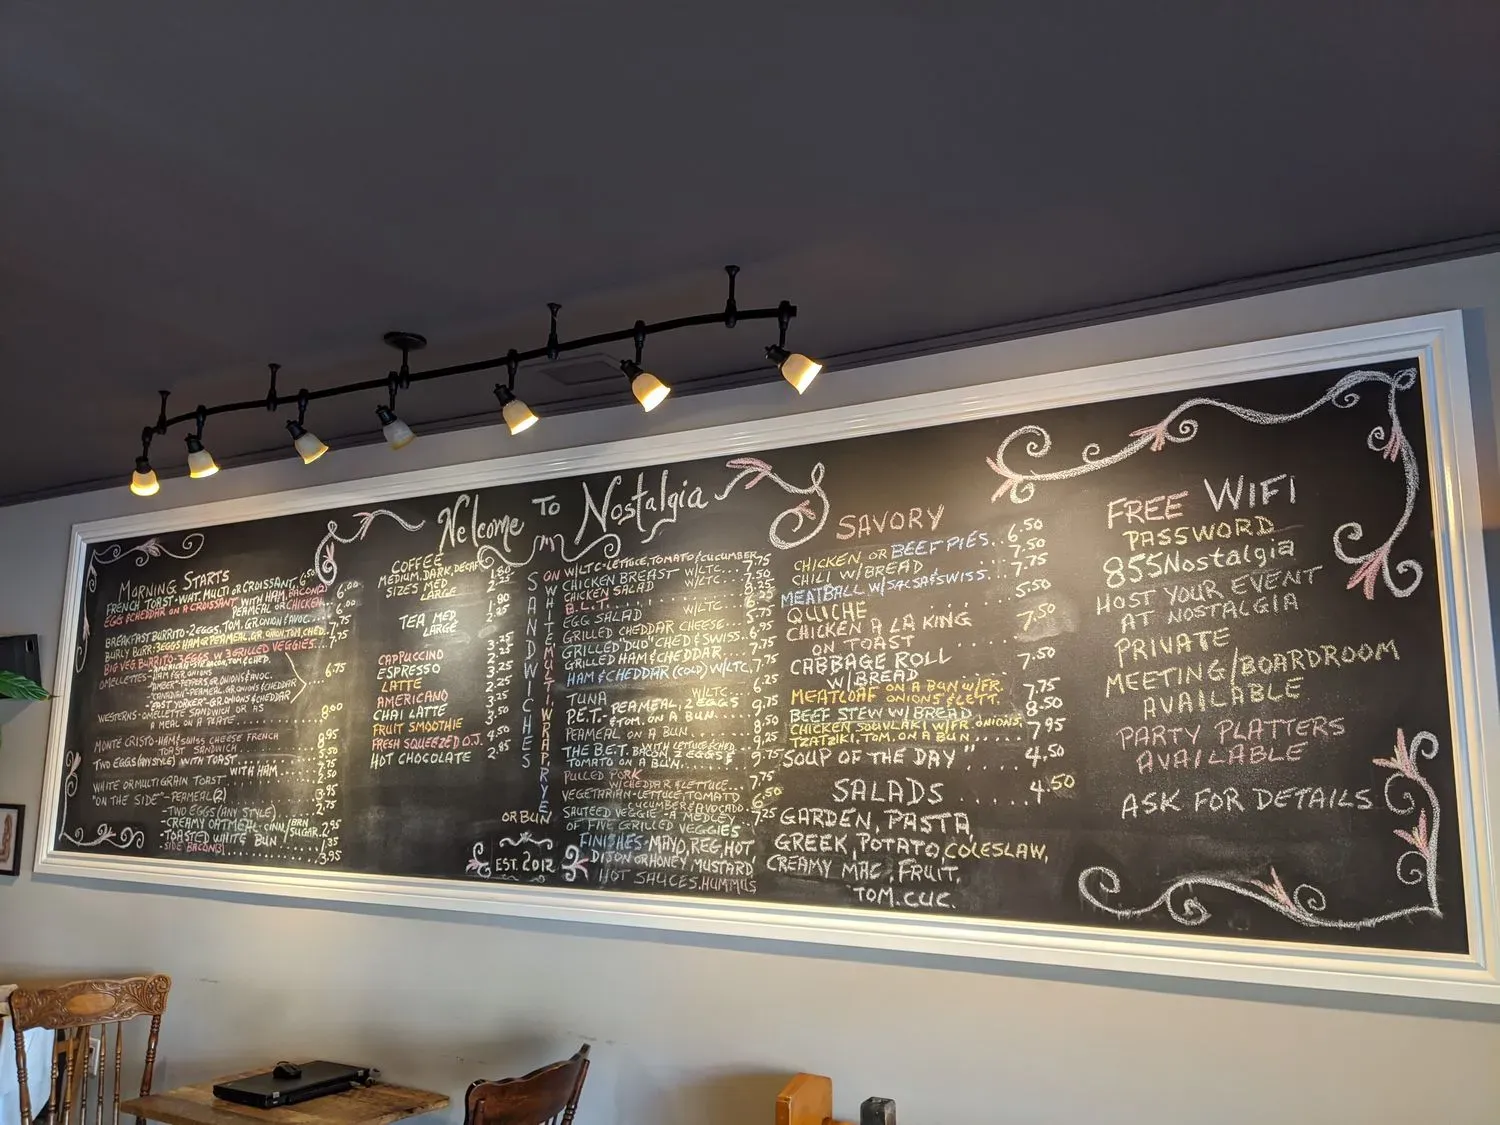 Welcome To Nostalgia
MORNING STARTS
FRENCH TOAST-WHT. MULTI OR CROISSANT. 6.50
EGG & CHEDDAR ON A CROISSANT WITH HAM, BACON(2) 6.00
PEAMEAL OR CHICKEN... 6.00
BREAKFAST BURRITO-2 EGGS, TOM, GR. ONION & AVOC... 7.75
BURLY BURR:3 EGGS HAM OR PEAMEAL, GR. ONION, TOM, CHED.
BIG VEG. BURRITO-3 EGGS W 3 GRILLED VEGGIES... 7.75
OMELLETTES-HAM & GR. ONIONS
-"AMERICAN" BACON, TOM & CHED.
-"AMBER"-PEPERS, GR. ONIONS & AVOC.
-"CANADIAN"-PEAMEAL, GR. ONIONS & CHEDDAR
-"EAST YORKER"-GR. ONIONS & CHEDDAR
6.75
WESTERNS-OMELLETTE SANDWICH OR AS
A MEAL ON A PLATE........ 8.00
MONTE CRISTO-HAM & SWISS CHEESE FRENCH
TOAST SANDWICH........ 8.95
TWO EGGS (ANY STYLE) WITH TOAST...... 5.50
WITH HAM...
WHITE OR MULTIGRAIN TOAST........ 2.50
"ON THE SIDE"-PEAMEAL(2)........ 3.95
-TWO EGGS (ANY STYLE)...... 2.75
-CREAMY OATMEAL CINN./BRN. SUGAR. 2.95
-TOASTED WHITE BUN...... 1.35
-SIDE BACON(3)........ 3.95
COFFEE
MEDIUM, DARK, DECAF
SIZES MED 1.80
LARGE
TEA MED 1.80
LARGE 2.25
CAPPUCCINO 3.25
ESPRESSO
LATTE
AMERICANO 2.25
CHAI LATTE
FRUIT SMOOTHIE
FRESH SQUEEZED O.J. 3.50
HOT CHOCOLATE 2.85
SANDWICHES
ON WHITE, MULTI, WRAP, RYE
OR BUN
EST. 2012
W/LTC-LETTUCE, TOMATO & CUCUMBER
CHICKEN BREAST W/LTC... 7.75
CHICKEN SALAD W/LTC... 7.50
B.L.T........ 8.25
EGG SALAD W/LTC... 6.25
GRILLED CHEDDAR CHEESE... 5.75
GRILLED DUO CHED & SWISS.. 6.95
GRILLED HAM & CHEDDAR...
HAM & CHEDDAR (COLD) W/LTC.. 7.75
TUNA W/LTC... 6.25
P.E.T.-PEAMEAL, 2 EGGS
& TOM. ON A BUN... 9.75
PEAMEAL ON A BUN... 8.50
THE B.E.T. BACON 2 EGGS &
LETTUCE & CHED.
TOMATO ON A BUN... 9.75
PULLED PORK
W/CHEDDAR & LETTUCE... 7.75
VEGETARIAN-LETTUCE, TOMATO,
CUCUMBER & AVOCADO. 6.50
SAUTEED VEGGIE-A MEDLEY
OF FIVE GRILLED VEGGIES 7.25
FINISHES-MAYO, REG, HOT
DIJON OR HONEY MUSTARD
HOT SAUCES, HUMMUS
SAVORY
CHICKEN OR BEEF PIES.. 6.50
CHILI W/BREAD....... 7.50
MEATBALL W/SALSA & SWISS.. 7.75
QUICHE........ 5.50
CHICKEN A LA KING
ON TOAST...... 7.50
CABBAGE ROLL
W/BREAD...... 7.50
MEATLOAF ON A BUN W/FR.
ONIONS & LETT. 7.75
BEEF STEW W/BREAD..... 8.50
CHICKEN SOUVLAKI W/FR ONIONS,
TZATZIKI, TOM. ON A BUN.. 7.95
"SOUP OF THE DAY".... 4.50
SALADS.... 4.50
GARDEN, PASTA,
GREEK, POTATO, COLESLAW,
CREAMY MAC, FRUIT,
TOM. CUC.
FREE WIFI
PASSWORD
855Nostalgia
HOST YOUR EVENT
AT NOSTALGIA
PRIVATE
MEETING/BOARDROOM
AVAILABLE
PARTY PLATTERS
AVAILABLE
ASK FOR DETAILS